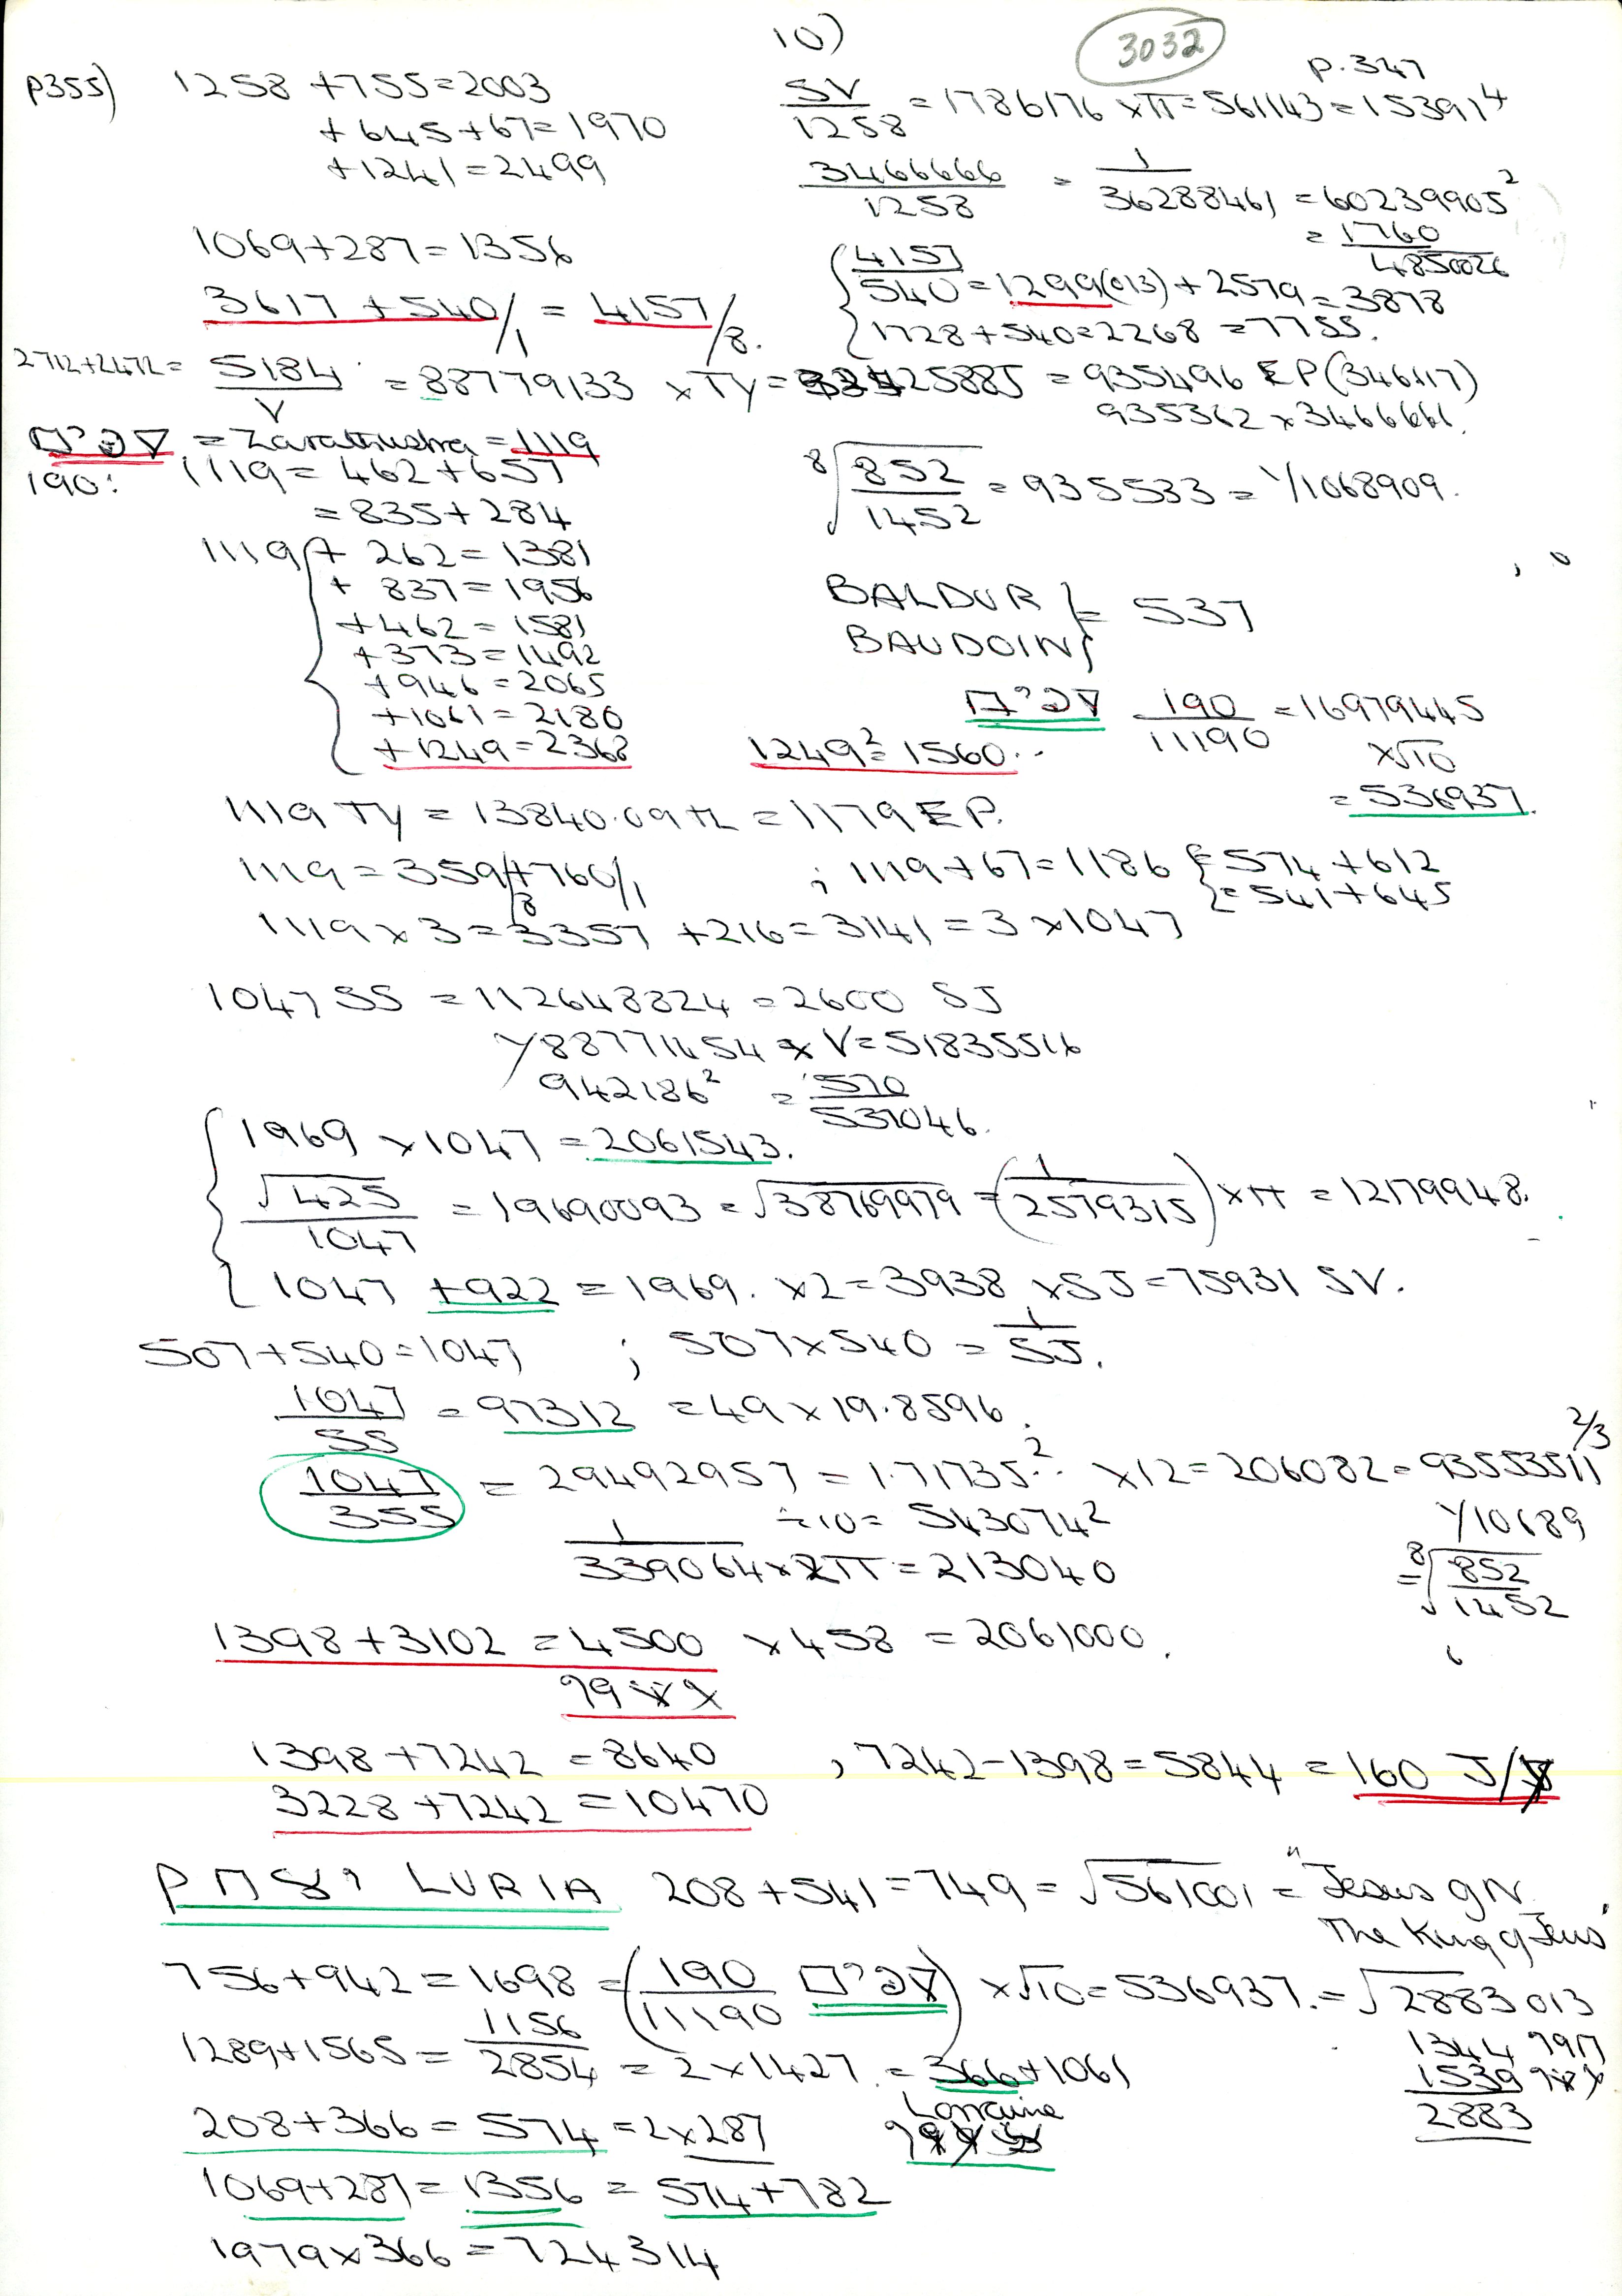 10)
3032
p355) 1258 + 755 = 2003
+ 645 + 67 = 1970
+ 1241 = 2499
p. 347
SV/1258 = 1786176 × π = 561143 = 153917⁴
3466666/1258 = 1/36288461 = 60239905²
= 1760/4850026
1069 + 287 = 1356
3617 + 540/1 = 4157/8.
4157/540 = 1299(013) + 2579 = 3878
1728 + 540 = 2268 = 7755.
2712 + 2472 = 5184/V = 88779133 × TY = 25885 = 935496 EP (346117)
935362 × 3466661.
= Zarathustra = 1119
190: 1119 = 462 + 657
= 835 + 284
⁸√852/1452 = 935533 = Y1068909.
1119 + 262 = 1381
+ 837 = 1956
+ 462 = 1581
+ 373 = 1492
+ 946 = 2065
+ 1061 = 2180
+ 1249 = 2368
BALDUR
BAUDOIN } = 537
1249² = 1560..
190/11190 = 16979445
×√10
= 536937.
1119 TY = 13840.09 TL = 1179 EP.
1119 = 359/8 + 760/1 ; 1119 + 67 = 1186 { = 574 + 612
= 541 + 645
1119 × 3 = 3357 + 216 = 3141 = 3 × 1047
1047 SS = 112648824 = 2600 SJ
Y88771454 × V = 51835516
942186² = 570/537046.
1969 × 1047 = 2061543.
√425/1047 = 19690093 = √38769979 = (1/2579315) × π = 12179948.
1047 + 922 = 1969. × 2 = 3938 × SJ = 75931 SV.
507 + 540 = 1047 ; 507 × 540 = 1/SJ.
1047/SS = 97312 = 49 × 19.8596.
1047/355 = 29492957 = 1.71735..² × 12 = 206082 = 93553511^2/3
÷10 = 543074²
Y10689
1/339064 × 2π = 213040
= ⁸√852/1452
1398 + 3102 = 4500 × 458 = 2061000.
1398 + 7242 = 8640 , 7242 - 1398 = 5844 = 160 J/
3228 + 7242 = 10470
LURIA 208 + 541 = 749 = √561001 = "Jesus of N.
The King of Jews"
756 + 942 = 1698 = (190/11190) × √10 = 536937. = √2883013
1289 + 1565 = 1156/2854 = 2 × 1427. = 366 + 1061
1344
1539
2883
Lorraine
208 + 366 = 574 = 2 × 287
1069 + 287 = 1356 = 574 + 782
1979 × 366 = 724314